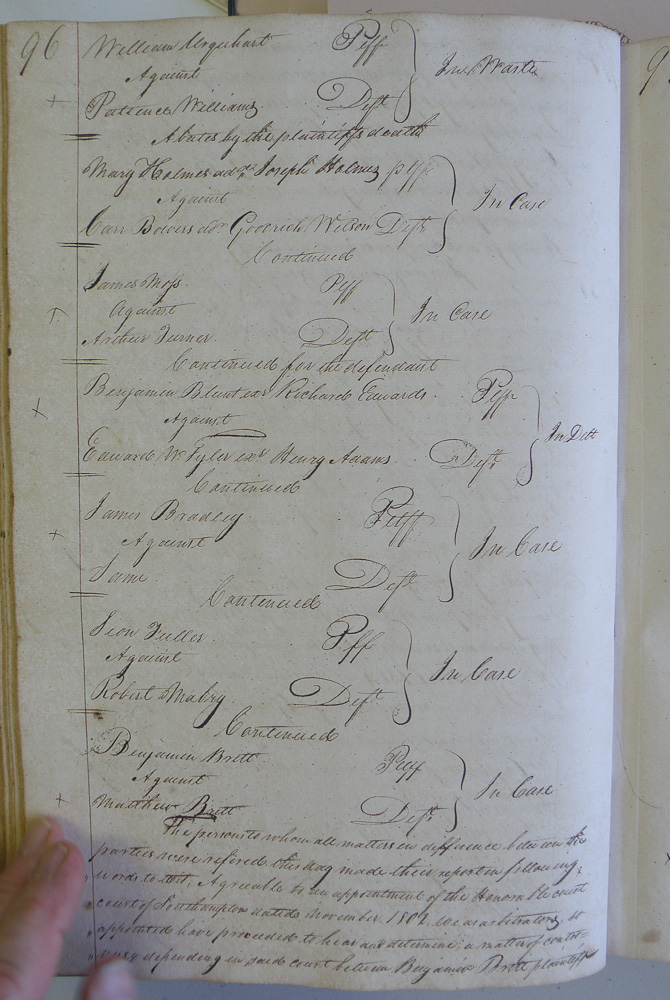 96
William Urquhart Plff
Against In Waste
Patience Williams Deft
Abates by the plaintiffs death
Mary Holmes adx. Joseph Holmes plff
Against In Case
Carr Bowers adr. Goodrich Wilson Deft
Continued
James Moss Plff
Against In Case
Arthur Turner Deft
Continued for the defendant
Benjamin Blunt exr Richard Edwards. Plff
Against In Debt
Edward W. Tyler exr Henry Adams. Deft
Continued
James Bradley. Plff
Against In Case
Same Deft
Continued
Plff
Against In Case
Robert Mabry Deft
Continued
Benjamin Brett Plff
Against In Case
Matthew Brett Deft
The persons to whom all matters in difference between the
parties were refered this day made their report in following
words to wit, Agreeable to an appointment of the Honorable court
court of Southampton dated November 1802 We as arbitrators so
appointed have proceeded to hear and determine; a matter of contro=
versy depending in said court between Benjamin Brett plaintiff